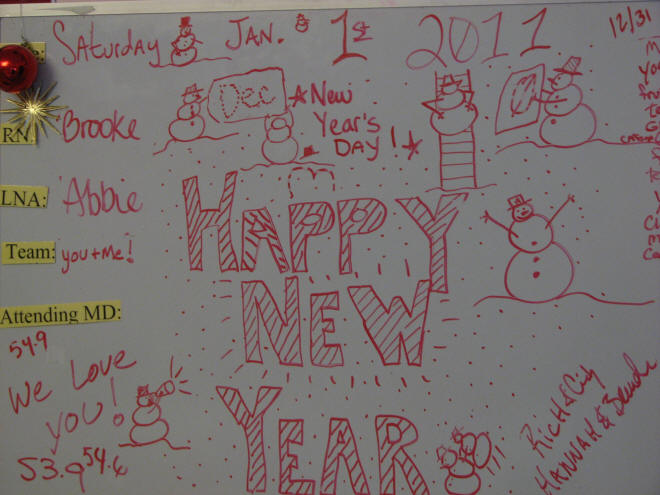 Saturday Jan. 1st 2011
12/31
Dec
New
Year's
Day!
RN: Brooke
LNA: Abbie
Team: you + me!
Attending MD:
HAPPY
NEW
YEAR
54.9
We Love
you!
53.9 54.6
Rich & Cindy
Hannah &